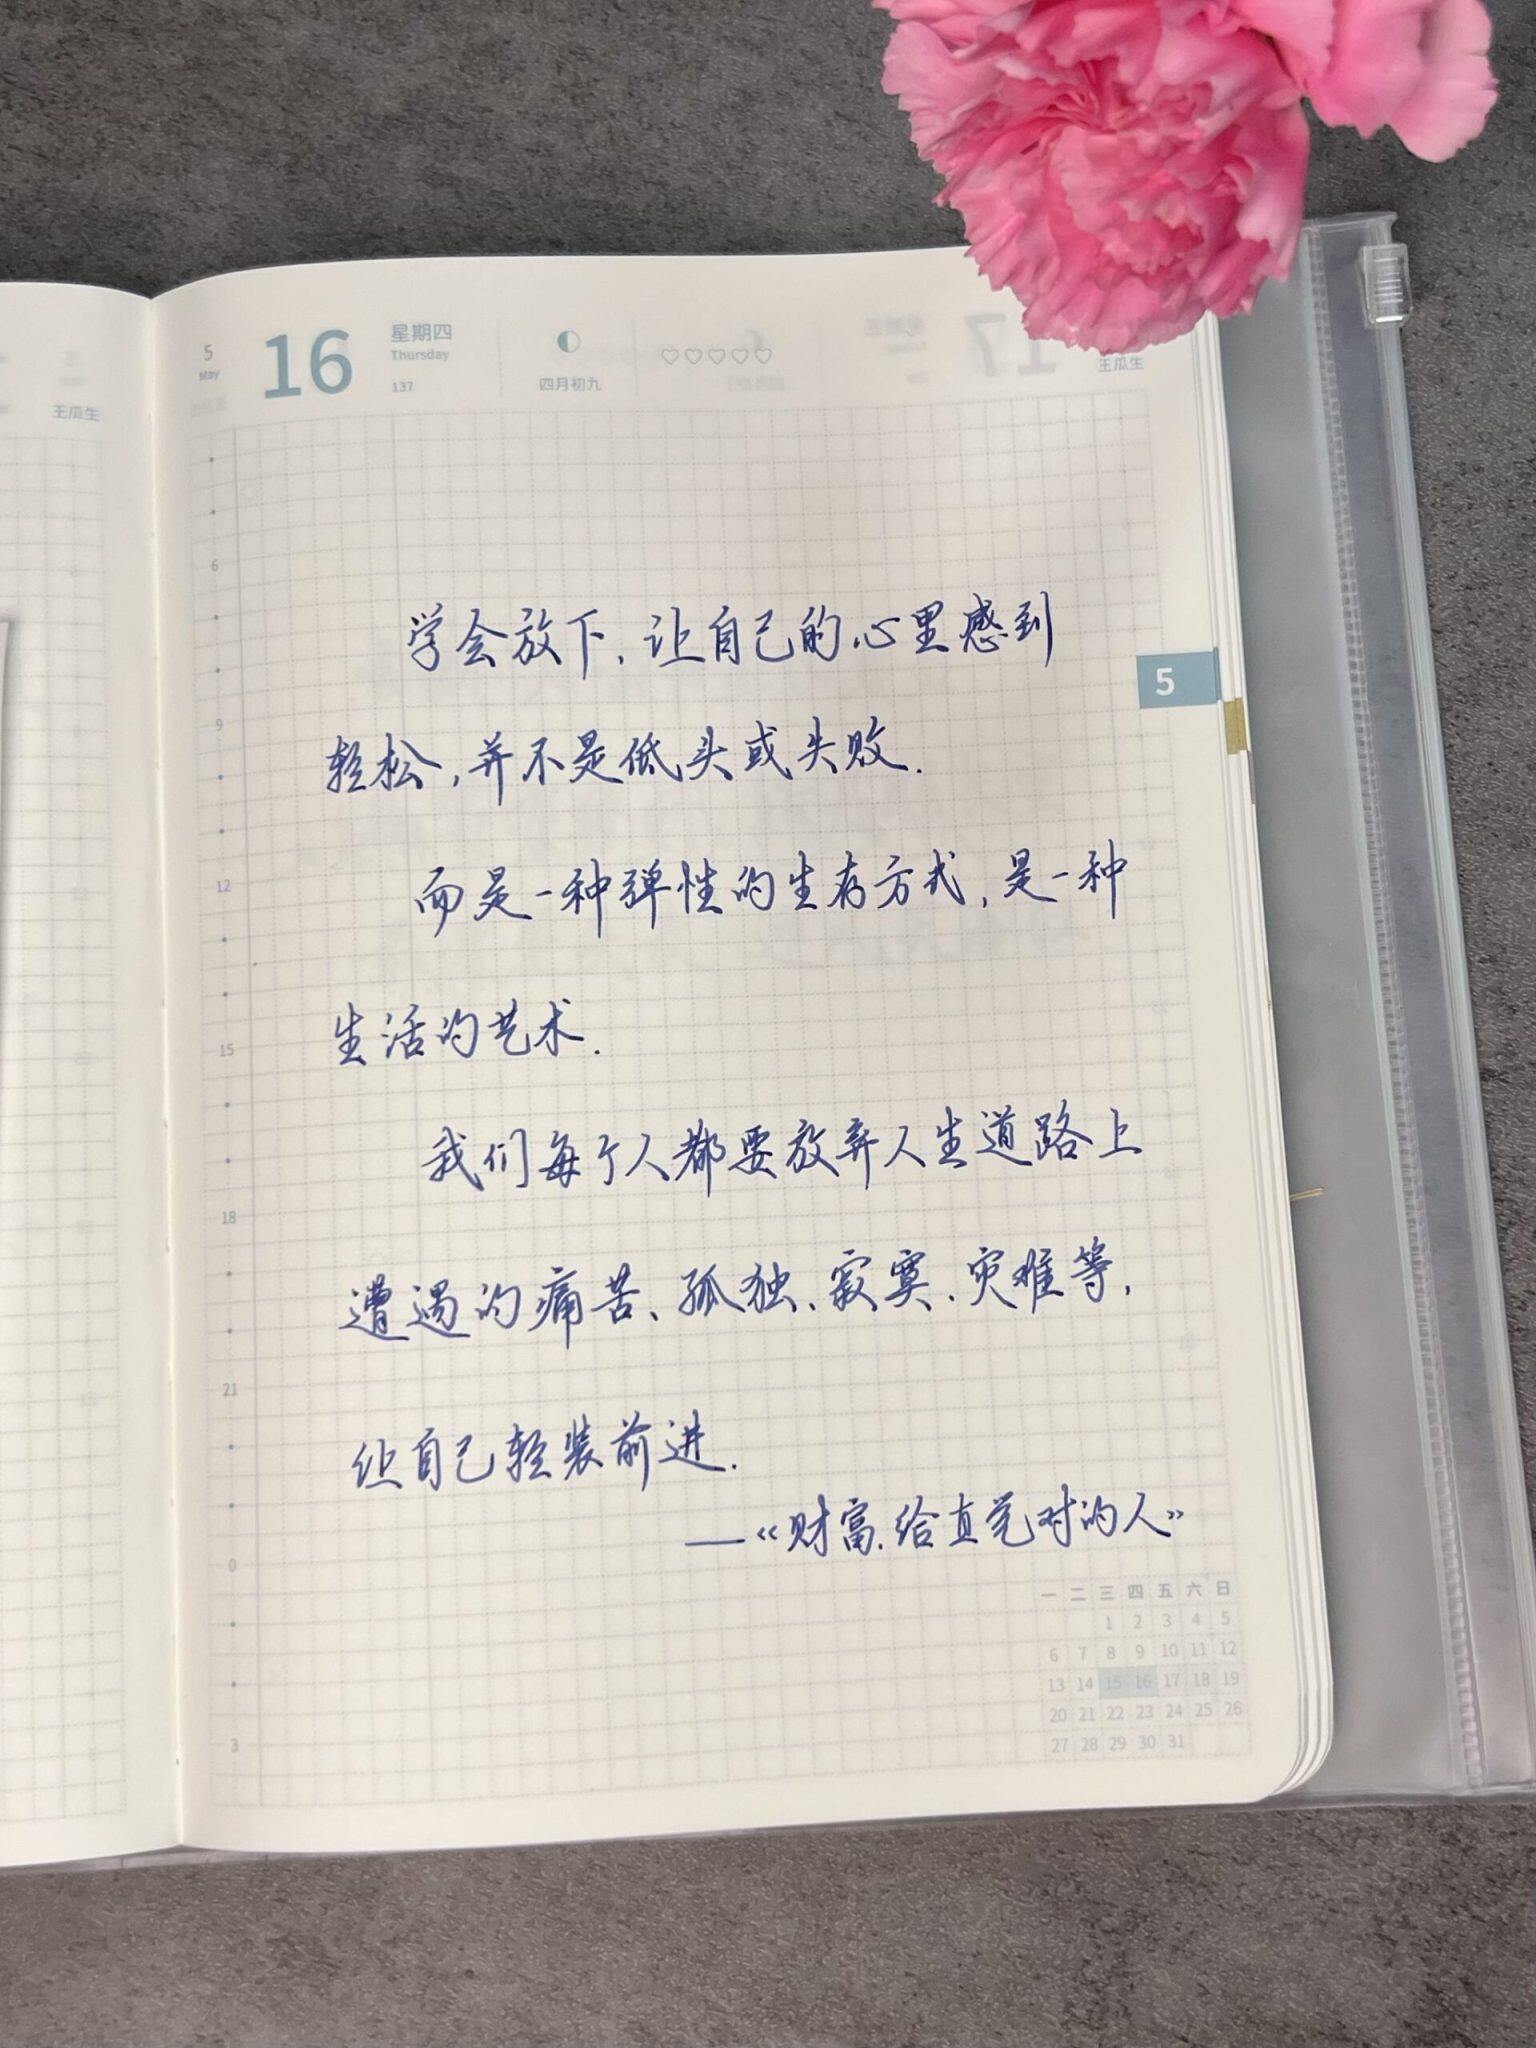 5
May
16
星期四
Thursday
137
四月初九
♡♡♡♡♡
王瓜生
王瓜生
6
9
12
15
18
21
0
3
5
学会放下,让自己的心里感到
轻松,并不是低头或失败.
而是一种弹性的生存方式,是一种
生活的艺术.
我们每个人都要放弃人生道路上
遭遇的痛苦、孤独、寂寞、灾难等,
让自己轻装前进.
—《财富.给直觉对的人》
一 二 三 四 五 六 日
1 2 3 4 5
6 7 8 9 10 11 12
13 14 15 16 17 18 19
20 21 22 23 24 25 26
27 28 29 30 31